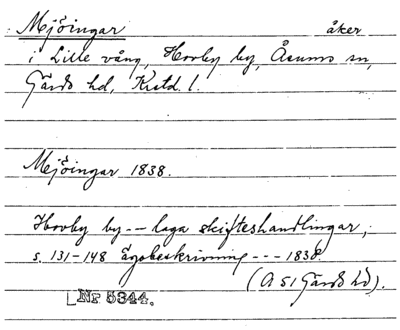 Mjöingar åker
i Lille vång, Hovby by, Åsums sn,
Gärds hd, Krstd. l.
Mejöingar 1838.
Hovby by -- laga skifteshandlingar,
s. 131-148 Ägobeskrivning --- 1838
(A 51 Gärds hd).
Nr 5344.